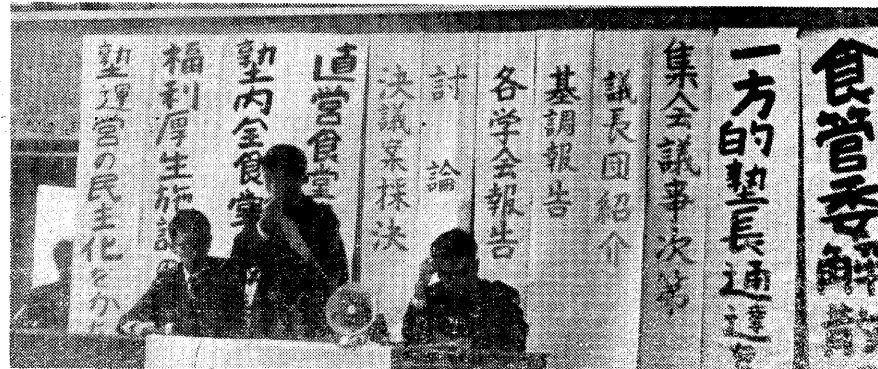 食管委解
一方的塾長通達
集会議事次第
議長団紹介
基調報告
各学会報告
討論
決議案採決
直営食堂
塾内全食堂
福利厚生施設の
塾運営の民主化をか